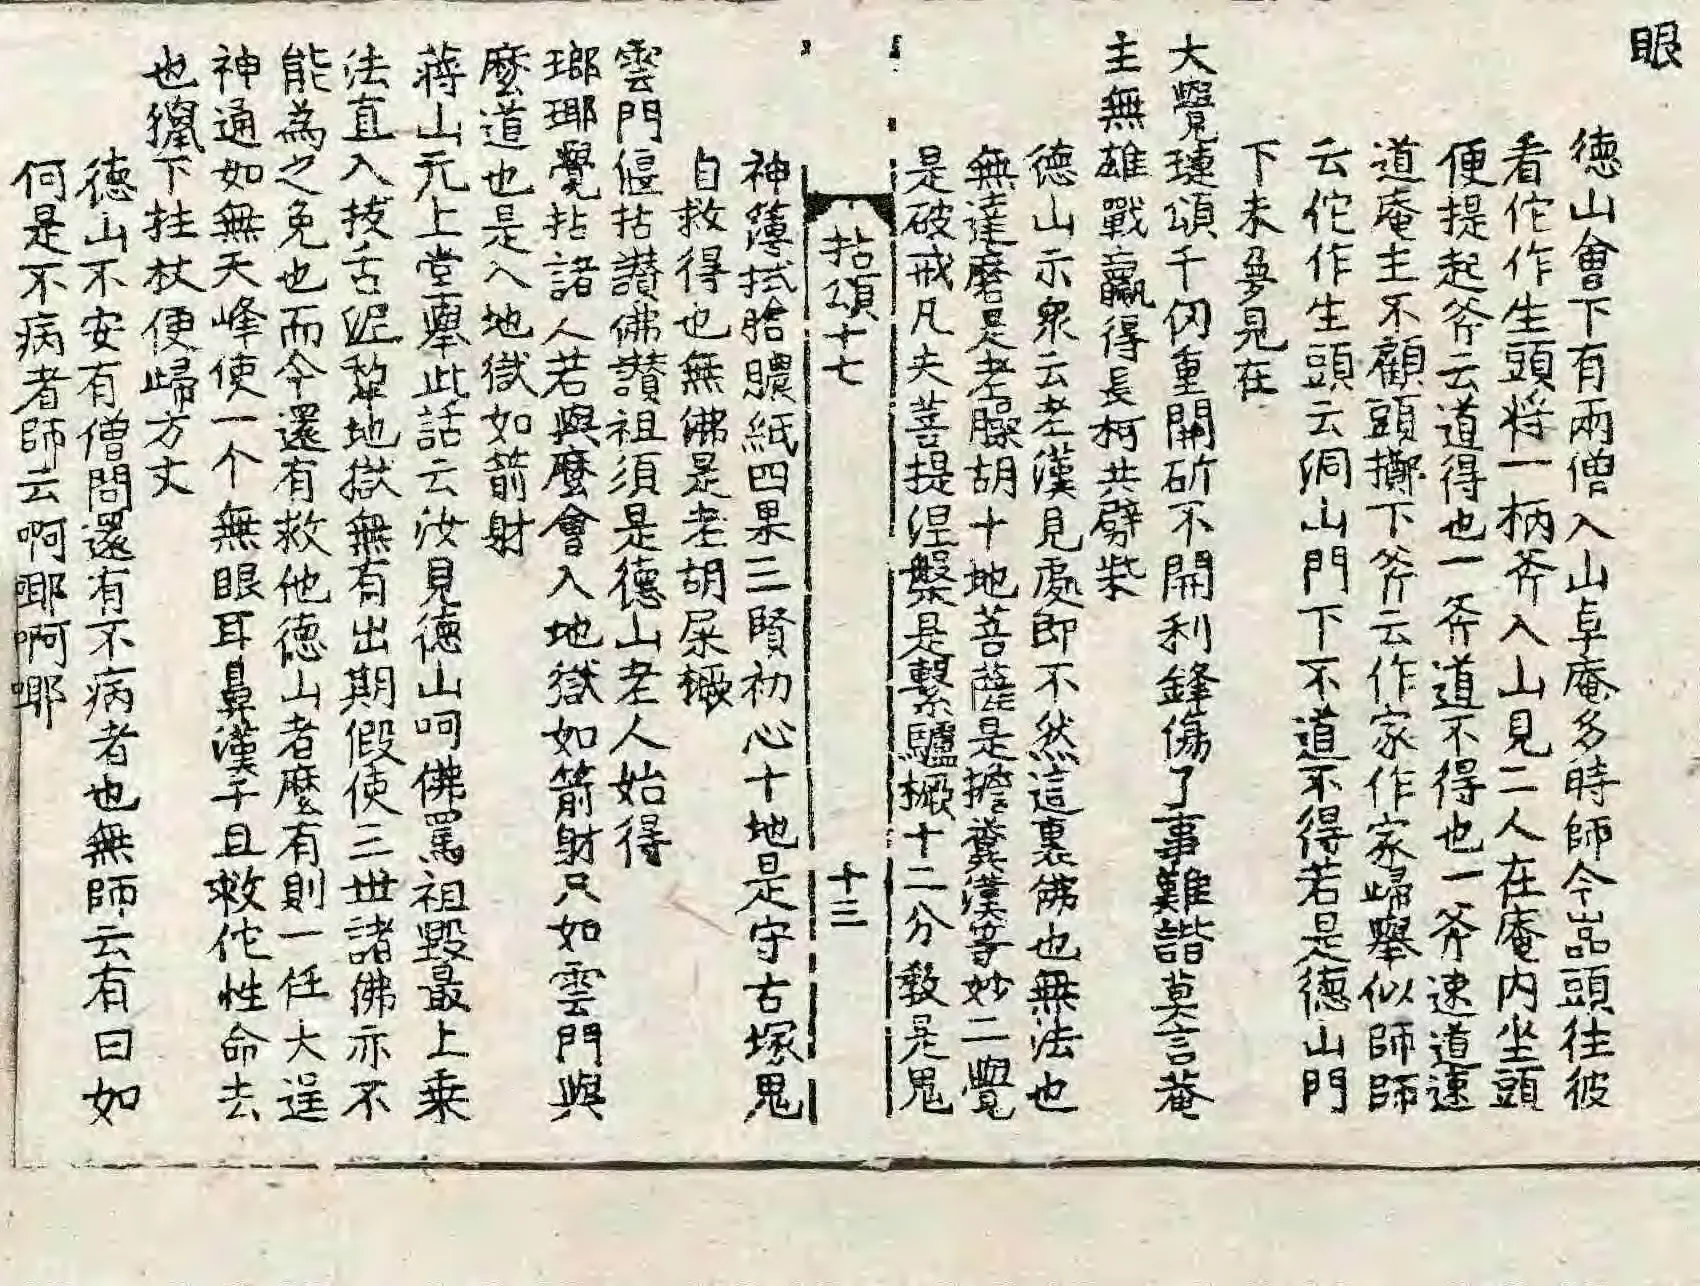 眼
德山會下有兩僧入山卓庵多時師令嵓頭往彼
看佗作生頭將一柄斧入山見二人在庵內坐頭
便提起斧云道得也一斧道不得也一斧速道速
道庵主不顧頭擲下斧云作家作家歸舉似師師
云佗作生頭云洞山門下不道不得若是德山門
下未夢見在
大覺璉頌千仞重開斫不開利鋒傷了事難諧莫言菴
主無雄戰贏得長柯共劈柴
德山示衆云老漢見處即不然這裏佛也無法也
無達磨是老臊胡十地菩薩是擔糞漢等妙二覺
是破戒凡夫菩提涅槃是繫驢橛十二分教是鬼
拈頌十七
十三
神簿拭膿紙四果三賢初心十地是守古塚鬼
自救得也無佛是老胡屎橛
雲門偃拈讚佛讚祖須是德山老人始得
瑯琊覺拈諸人若與麽會入地獄如箭射只如雲門與
麽道也是入地獄如箭射
蔣山元上堂舉此話云汝見德山呵佛罵祖毀最上乘
法直入拔舌泥犂地獄無有出期假使三世諸佛亦不
能爲之免也而今還有救他德山者麽有則一任大逞
神通如無天峰使一个無眼耳鼻漢手且救佗性命去
也攛下拄杖便歸方丈
德山不安有僧問還有不病者也無師云有曰如
何是不病者師云啊㖿啊㖿